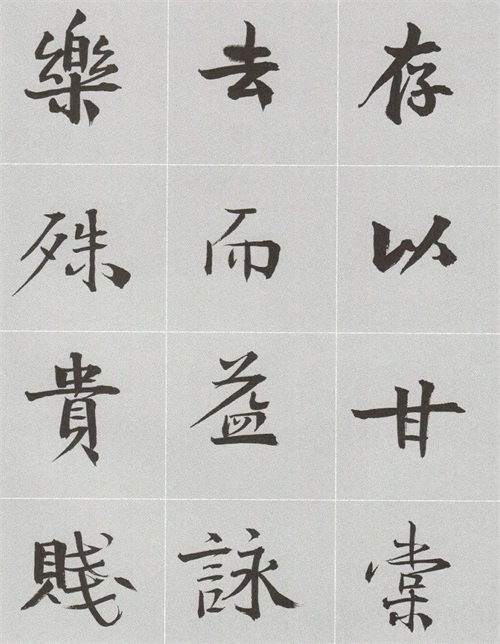 存以甘棠
去而益詠
樂殊貴賤